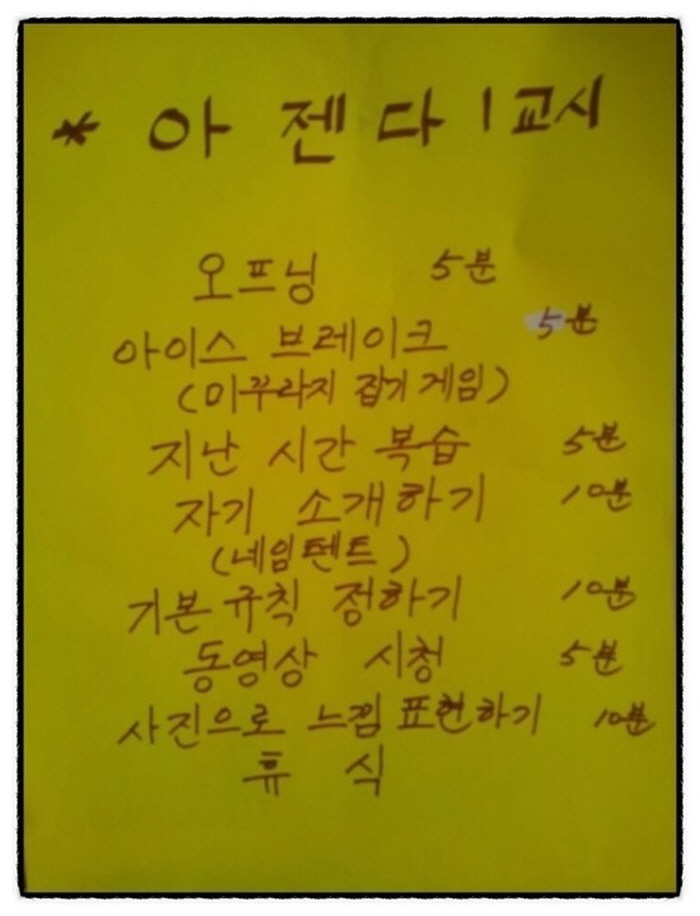 * 아젠다 1교시
오프닝 5분
아이스 브레이크 5분
(미꾸라지 잡기 게임)
지난 시간 복습 5분
자기 소개하기 10분
(네임텐트)
기본 규칙 정하기 10분
동영상 시청 5분
사진으로 느낌 표현하기 10분
휴 식